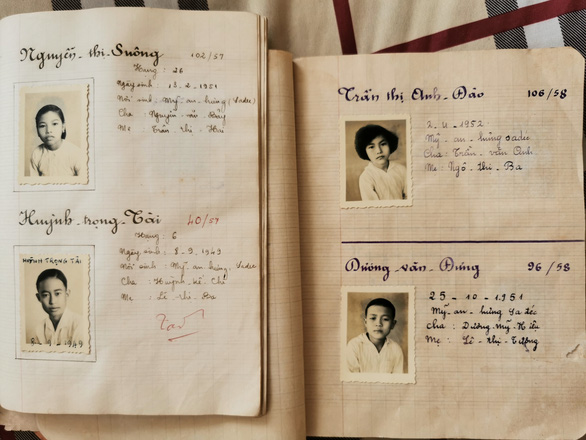 Nguyễn - thị - Suông 102/59
Hạng : 26
Ngày sinh : 13 - 2 - 1951
Nơi sinh : Mỹ - an - hưng (Sadec)
Cha : Nguyễn - văn
Mẹ : Trần - thị - Hai
Huỳnh - trọng - Tài 40/59
Hạng : 6
Ngày sinh : 8 - 9 - 1949
Nơi sinh : Mỹ - an - hưng (Sadec
Cha : Huỳnh - kế - Chí
Mẹ : Lê - thị - Ba
HUỲNH TRỌNG TÀI
8 - 9 - 1949
Trần thị Anh - Đào 106/58
1952
Mỹ - an - hưng sadec
Cha : Trần - văn Anh
Mẹ : Ngô - thị - Ba
Dương - văn - Đúng 96/58
25 - 10 - 1951
Mỹ - an - hưng Sa đéc
Cha : Dương - Mỹ - Hiếu
Mẹ : Lê - thị - Tường